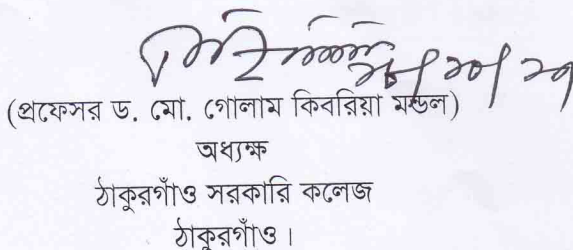 (প্রফেসর ড. মো. গোলাম কিবরিয়া মন্ডল)
অধ্যক্ষ
ঠাকুরগাঁও সরকারি কলেজ
ঠাকুরগাঁও।